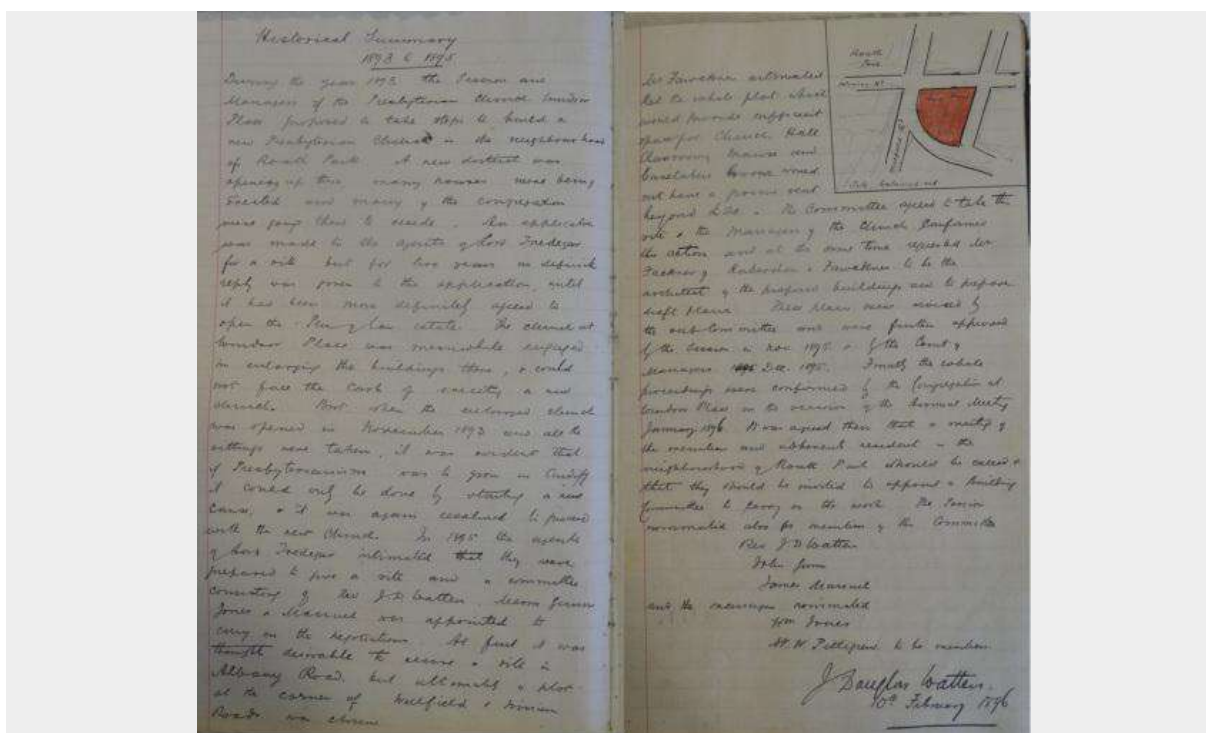 Historical Summary
1893 to 1895
During the year 1893 the Session and
Managers of the Presbyterian Church Windsor
Place proposed to take steps to build a
new Presbyterian Church in the neighbourhood
of Roath Park. A new district was
opening up there, many houses were being
erected and many of the congregation
were going there to reside. An application
was made to the agents of Lord Tredegar
for a site but for two years no definite
reply was given to the application, until
it had been more definitely agreed to
open the Pen y lan estate. The church at
Windsor Place was meanwhile engaged
in enlarging the buildings there, & could
not face the task of erecting a new
church. But when the enlarged church
was opened in November 1893 and all the
sittings were taken, it was evident that
if Presbyterianism was to grow in Cardiff
it could only be done by starting a new
cause, & it was again resolved to proceed
with the new Church. In 1895 the agents
of Lord Tredegar intimated that they were
prepared to give a site and a committee
consisting of Rev J. D. Watters, Messrs
Jones & was appointed to
carry on the negotiations. At first it was
thought desirable to secure a site in
Albany Road, but ultimately a plot
at the corner of Wellfield &
Roads was chosen
Roath
Park
Mr Fawckner estimated
that the whole plot which
would provide sufficient
space for Church Hall
Classrooms Manse and
Caretakers house would
not have a ground rent
beyond £20. The Committee agreed to take the
site & the Managers of the Church confirmed
the action and at the same time requested Mr
Fawckner of Habershon & Fawckner to be the
architect of the proposed buildings and to prepare
draft plans. These plans were revised by
the sub-Committee and were further approved
by the Session in Nov 1895 & by the Court of
Managers Dec. 1895. Finally the whole
proceedings were confirmed by the Congregation at
Windsor Place on the occasion of the Annual Meeting
January 1896. It was agreed then that a meeting of
the members and adherents resident in the
neighbourhood of Roath Park should be called &
that they should be invited to appoint a Building
Committee to carry on the work. The Session
nominated also for members of the Committee
Rev J D Watters
John
James
and the managers nominated
Wm Jones
W. Pettigrew to be members.
J Douglas Watters.
10th February 1896